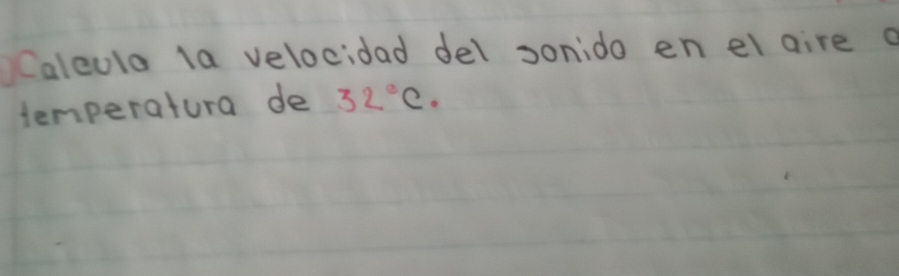 Calcula la velocidad del sonido en el aire a
temperatura de 32°C.